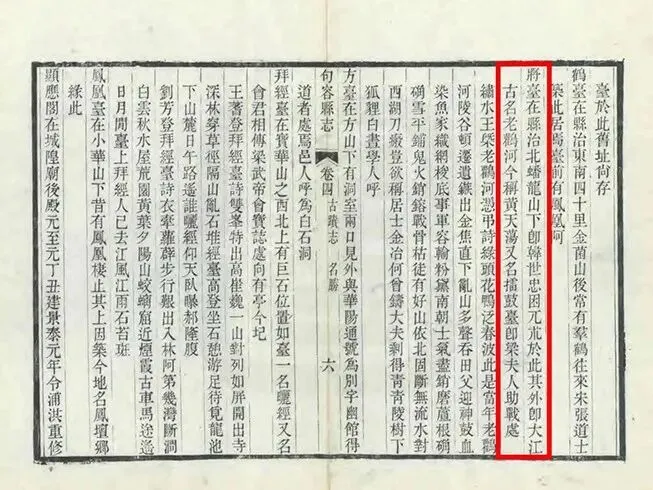 臺於此舊址尚存
鶴臺在縣治東南四十里金菌山後常有羣鶴往來朱張道士
築此居焉臺前有鳳凰阿
將臺在縣治北蟠龍山下卽韓世忠困兀朮於此其外卽大江
古名老鸛河今稱黃天蕩又名擂鼓臺卽梁夫人助戰處
繡水王槩老鸛河憑弔詩綠頭花鴨泛春波此是當年老鸛
河陵谷頓遷遺鏃出金焦直下亂山多聲吞田父迎神鼓血
染魚家織網梭底事軍容輸粉黛南朝士氣盡銷磨蔖根硇
硇雪平鋪鬼火銷鎔戰骨枯徒有好山依北固斷無流水對
西湖刀緞豈欲稱居士金冶何曾鑄大夫剩得青青陵樹下
狐狸白晝學人呼
句容縣志 卷四 古蹟志 名勝 六
方臺在方山下有洞室兩口見外與華陽通號為別宇幽館得
道者處焉邑人呼為白石洞
拜經臺在寶華山之西北上有巨石位置如臺一名曬經又名
會君相傳梁武帝會寶誌處向有亭今圮
王蓍登拜經臺詩雙峯特出高崔巍一山對列如屏開出寺
深林穿草徑隔山亂石堆經臺高登坐石憩游足待覓龍池
下山麓日午路遙誰曬經仰天臥曝郝隆腹
劉芳登拜經臺詩衣牽蘿薜步行艱出入林阿第幾灣斷澗
白雲秋水屋荒園黃葉夕陽山蛟螭窟近煙霞古車馬迹遙
日月閒臺上拜經人已去江風江雨石苔斑
鳳凰臺在小華山下昔有鳳凰棲止其上因築今地名鳳壇鄉
緣此
顯應閣在城隍廟後殿元至元丁丑建景泰元年令浦洪重修